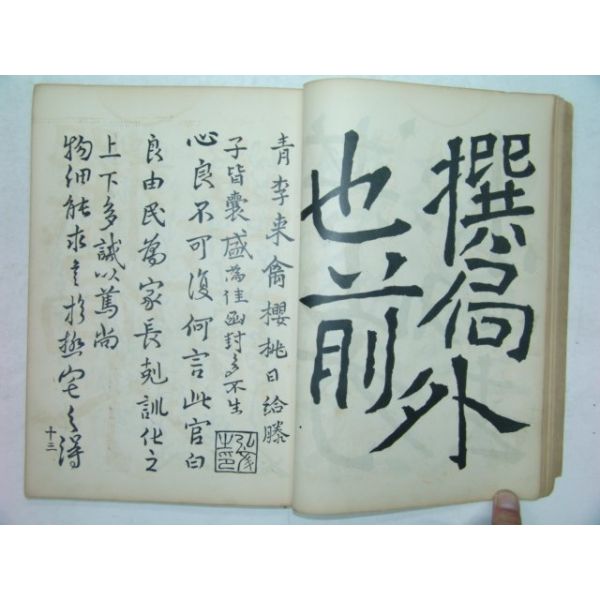 撰外
也前
青李來禽櫻桃日給滕
子皆囊盛為佳函封多不生
心良不可復何言此官白
良由民為家長訓化之
上下多誠以篤尚
物細能求於之得
十三
之印